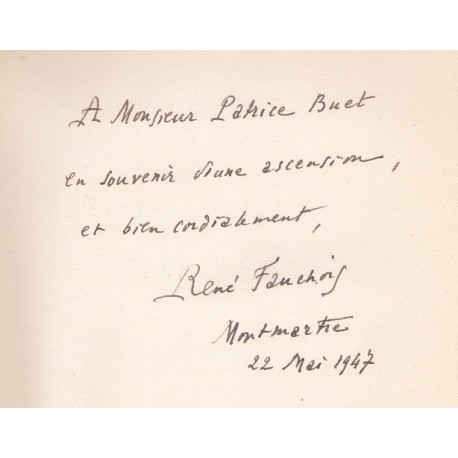 A Monsieur Patrice Buet
en souvenir d'une ascension,
et bien cordialement,
René Fauchois
Montmartre
22 Mai 1947